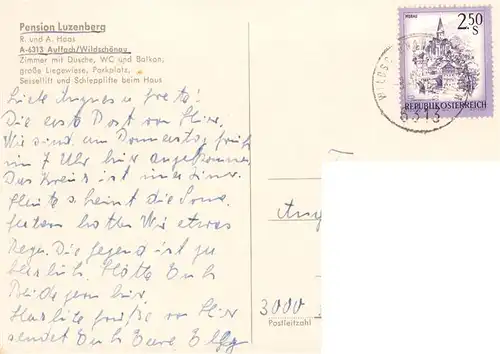 Pension Luzenberg
R. und A. Haas
A-6313 Auffach/Wildschönau
Zimmer mit Dusche, WC und Balkon,
große Liegewiese, Parkplatz,
Sessellift und Schlepplifte beim Haus
Liebe u Greta!
Die erste Post von Hier.
Wir sind am Donnerstag früh
im 7 Uhr hier angekommen
Das ist immer
Heute scheint die Sonne.
Gestern hatten Wir etwas
Regen. Die Gegend ist ja
herrlich. Hätte Euch
Beide gern hier.
Herzliche Grüße von Hier
sendet Euch Eure
MURAU
2.50
S
REPUBLIK ÖSTERREICH
6313
3000
Postleitzahl